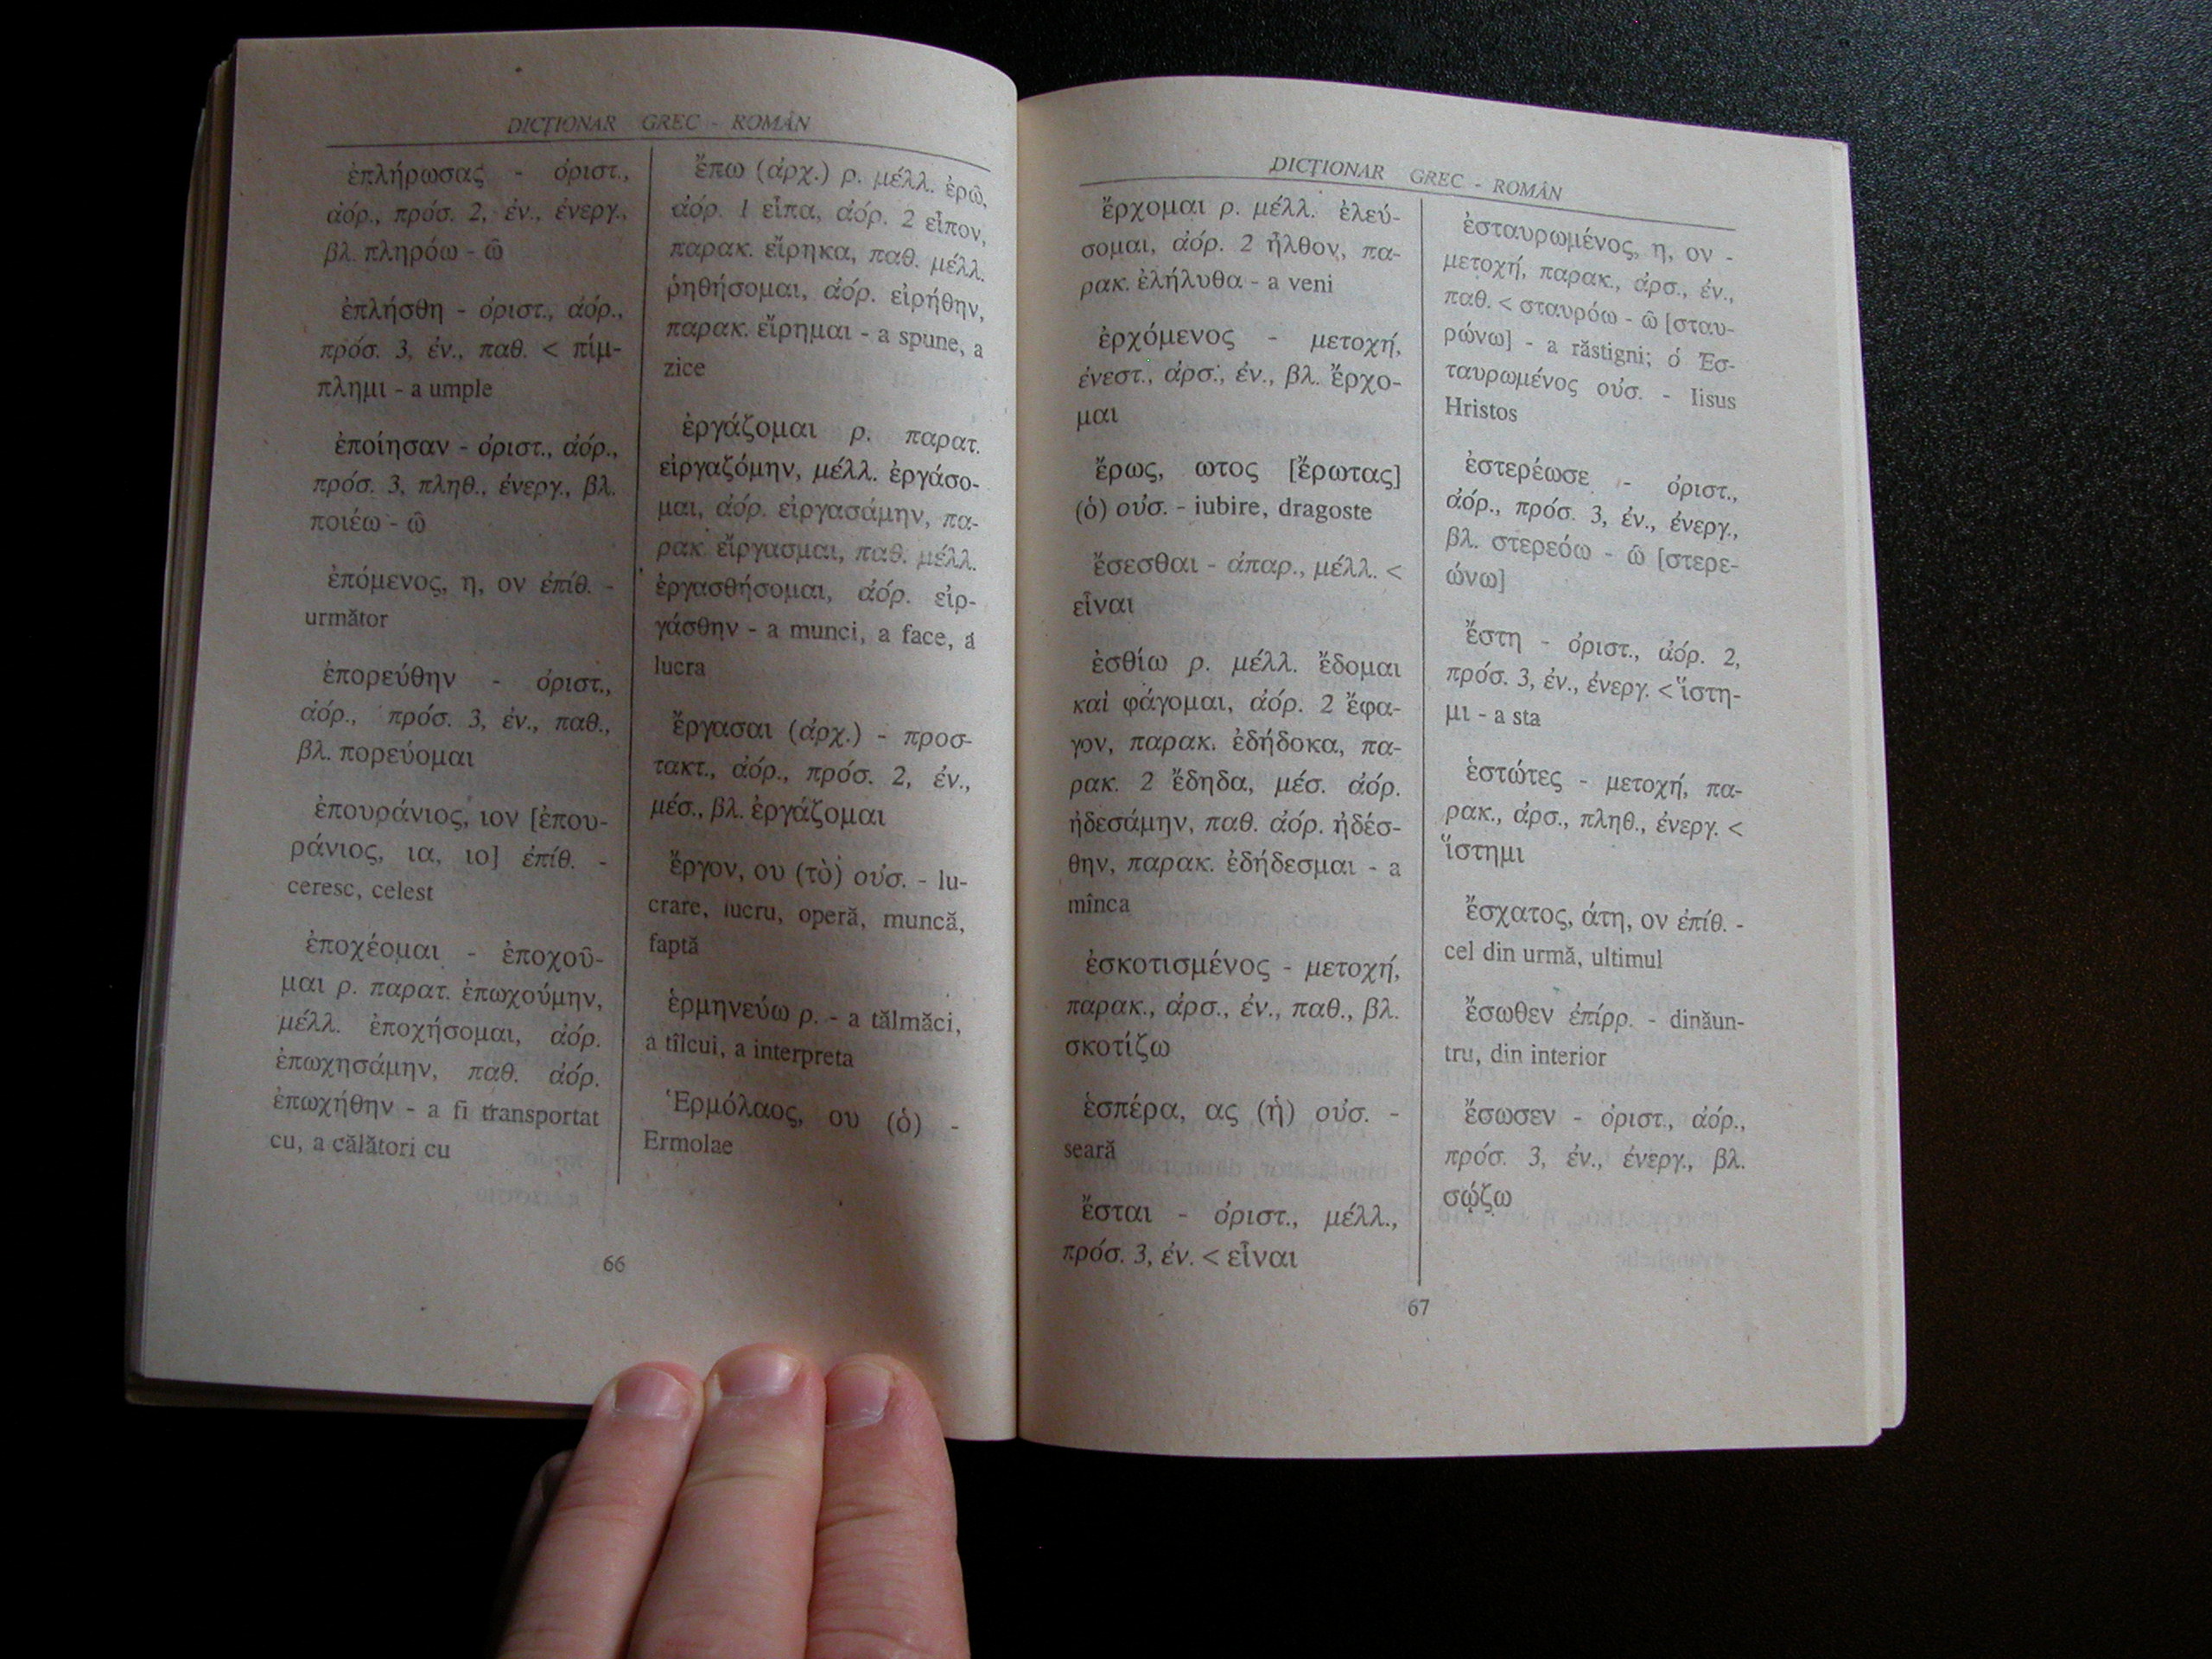 DICŢIONAR GREC - ROMÂN
ἐπλήρωσας - ὁριστ.,
ἀόρ., πρόσ. 2, ἑν., ἐνεργ.,
βλ. πληρόω - ῶ
ἐπλήσθη - ὁριστ., ἀόρ.,
πρόσ. 3, ἑν., παθ. < πίμ-
πλημι - a umple
ἐποίησαν - ὁριστ., ἀόρ.,
πρόσ. 3, πληθ., ἐνεργ., βλ.
ποιέω - ῶ
ἐπόμενος, η, ον ἐπίθ. -
următor
ἐπορεύθην - ὁριστ.,
ἀόρ., πρόσ. 3, ἑν., παθ.,
βλ. πορεύομαι
ἐπουράνιος, ιον [ἐπου-
ράνιος, ια, ιο] ἐπίθ. -
ceresc, celest
ἐποχέομαι - ἐποχοῦ-
μαι ρ. παρατ. ἐπωχούμην,
μέλλ. ἐποχήσομαι, ἀόρ.
ἐπωχησάμην, παθ. ἀόρ.
ἐπωχήθην - a fi transportat
cu, a călători cu
ἔπω (ἀρχ.) ρ. μέλλ. ἐρῶ,
ἀόρ. 1 εἶπα, ἀόρ. 2 εἶπον,
παρακ. εἴρηκα, παθ. μέλλ.
ῥηθήσομαι, ἀόρ. εἰρήθην,
παρακ. εἴρημαι - a spune, a
zice
ἐργάζομαι ρ. παρατ.
εἰργαζόμην, μέλλ. ἐργάσο-
μαι, ἀόρ. εἰργασάμην, πα-
ρακ. εἴργασμαι, παθ. μέλλ.
ἐργασθήσομαι, ἀόρ. εἰρ-
γάσθην - a munci, a face, a
lucra
ἔργασαι (ἀρχ.) - προσ-
τακτ., ἀόρ., πρόσ. 2, ἑν.,
μέσ., βλ. ἐργάζομαι
ἔργον, ου (τὸ) οὐσ. - lu-
crare, lucru, operă, muncă,
faptă
ἑρμηνεύω ρ. - a tălmăci,
a tîlcui, a interpreta
Ἑρμόλαος, ου (ὁ) -
Ermolae
66
DICŢIONAR GREC - ROMÂN
ἔρχομαι ρ. μέλλ. ἐλεύ-
σομαι, ἀόρ. 2 ἦλθον, πα-
ρακ. ἐλήλυθα - a veni
ἐρχόμενος - μετοχή,
ἐνεστ., ἀρσ., ἑν., βλ. ἔρχο-
μαι
ἔρως, ωτος [ἔρωτας]
(ὁ) οὐσ. - iubire, dragoste
ἔσεσθαι - ἀπαρ., μέλλ. <
εἶναι
ἐσθίω ρ. μέλλ. ἔδομαι
καὶ φάγομαι, ἀόρ. 2 ἔφα-
γον, παρακ. ἐδήδοκα, πα-
ρακ. 2 ἔδηδα, μέσ. ἀόρ.
ἠδεσάμην, παθ. ἀόρ. ἠδέσ-
θην, παρακ. ἐδήδεσμαι - a
mînca
ἐσκοτισμένος - μετοχή,
παρακ., ἀρσ., ἑν., παθ., βλ.
σκοτίζω
ἑσπέρα, ας (ἡ) οὐσ. -
seară
ἔσται - ὁριστ., μέλλ.,
πρόσ. 3, ἑν. < εἶναι
ἐσταυρωμένος, η, ον -
μετοχή, παρακ., ἀρσ., ἑν.,
παθ. < σταυρόω - ῶ [σταυ-
ρώνω] - a răstigni; ὁ Ἐσ-
ταυρωμένος οὐσ. - Iisus
Hristos
ἐστερέωσε - ὁριστ.,
ἀόρ., πρόσ. 3, ἑν., ἐνεργ.,
βλ. στερεόω - ῶ [στερε-
ώνω]
ἔστη - ὁριστ., ἀόρ. 2,
πρόσ. 3, ἑν., ἐνεργ. < ἵστη-
μι - a sta
ἑστώτες - μετοχή, πα-
ρακ., ἀρσ., πληθ., ἐνεργ. <
ἵστημι
ἔσχατος, άτη, ον ἐπίθ. -
cel din urmă, ultimul
ἔσωθεν ἐπίρρ. - dinăun-
tru, din interior
ἔσωσεν - ὁριστ., ἀόρ.,
πρόσ. 3, ἑν., ἐνεργ., βλ.
σῴζω
67